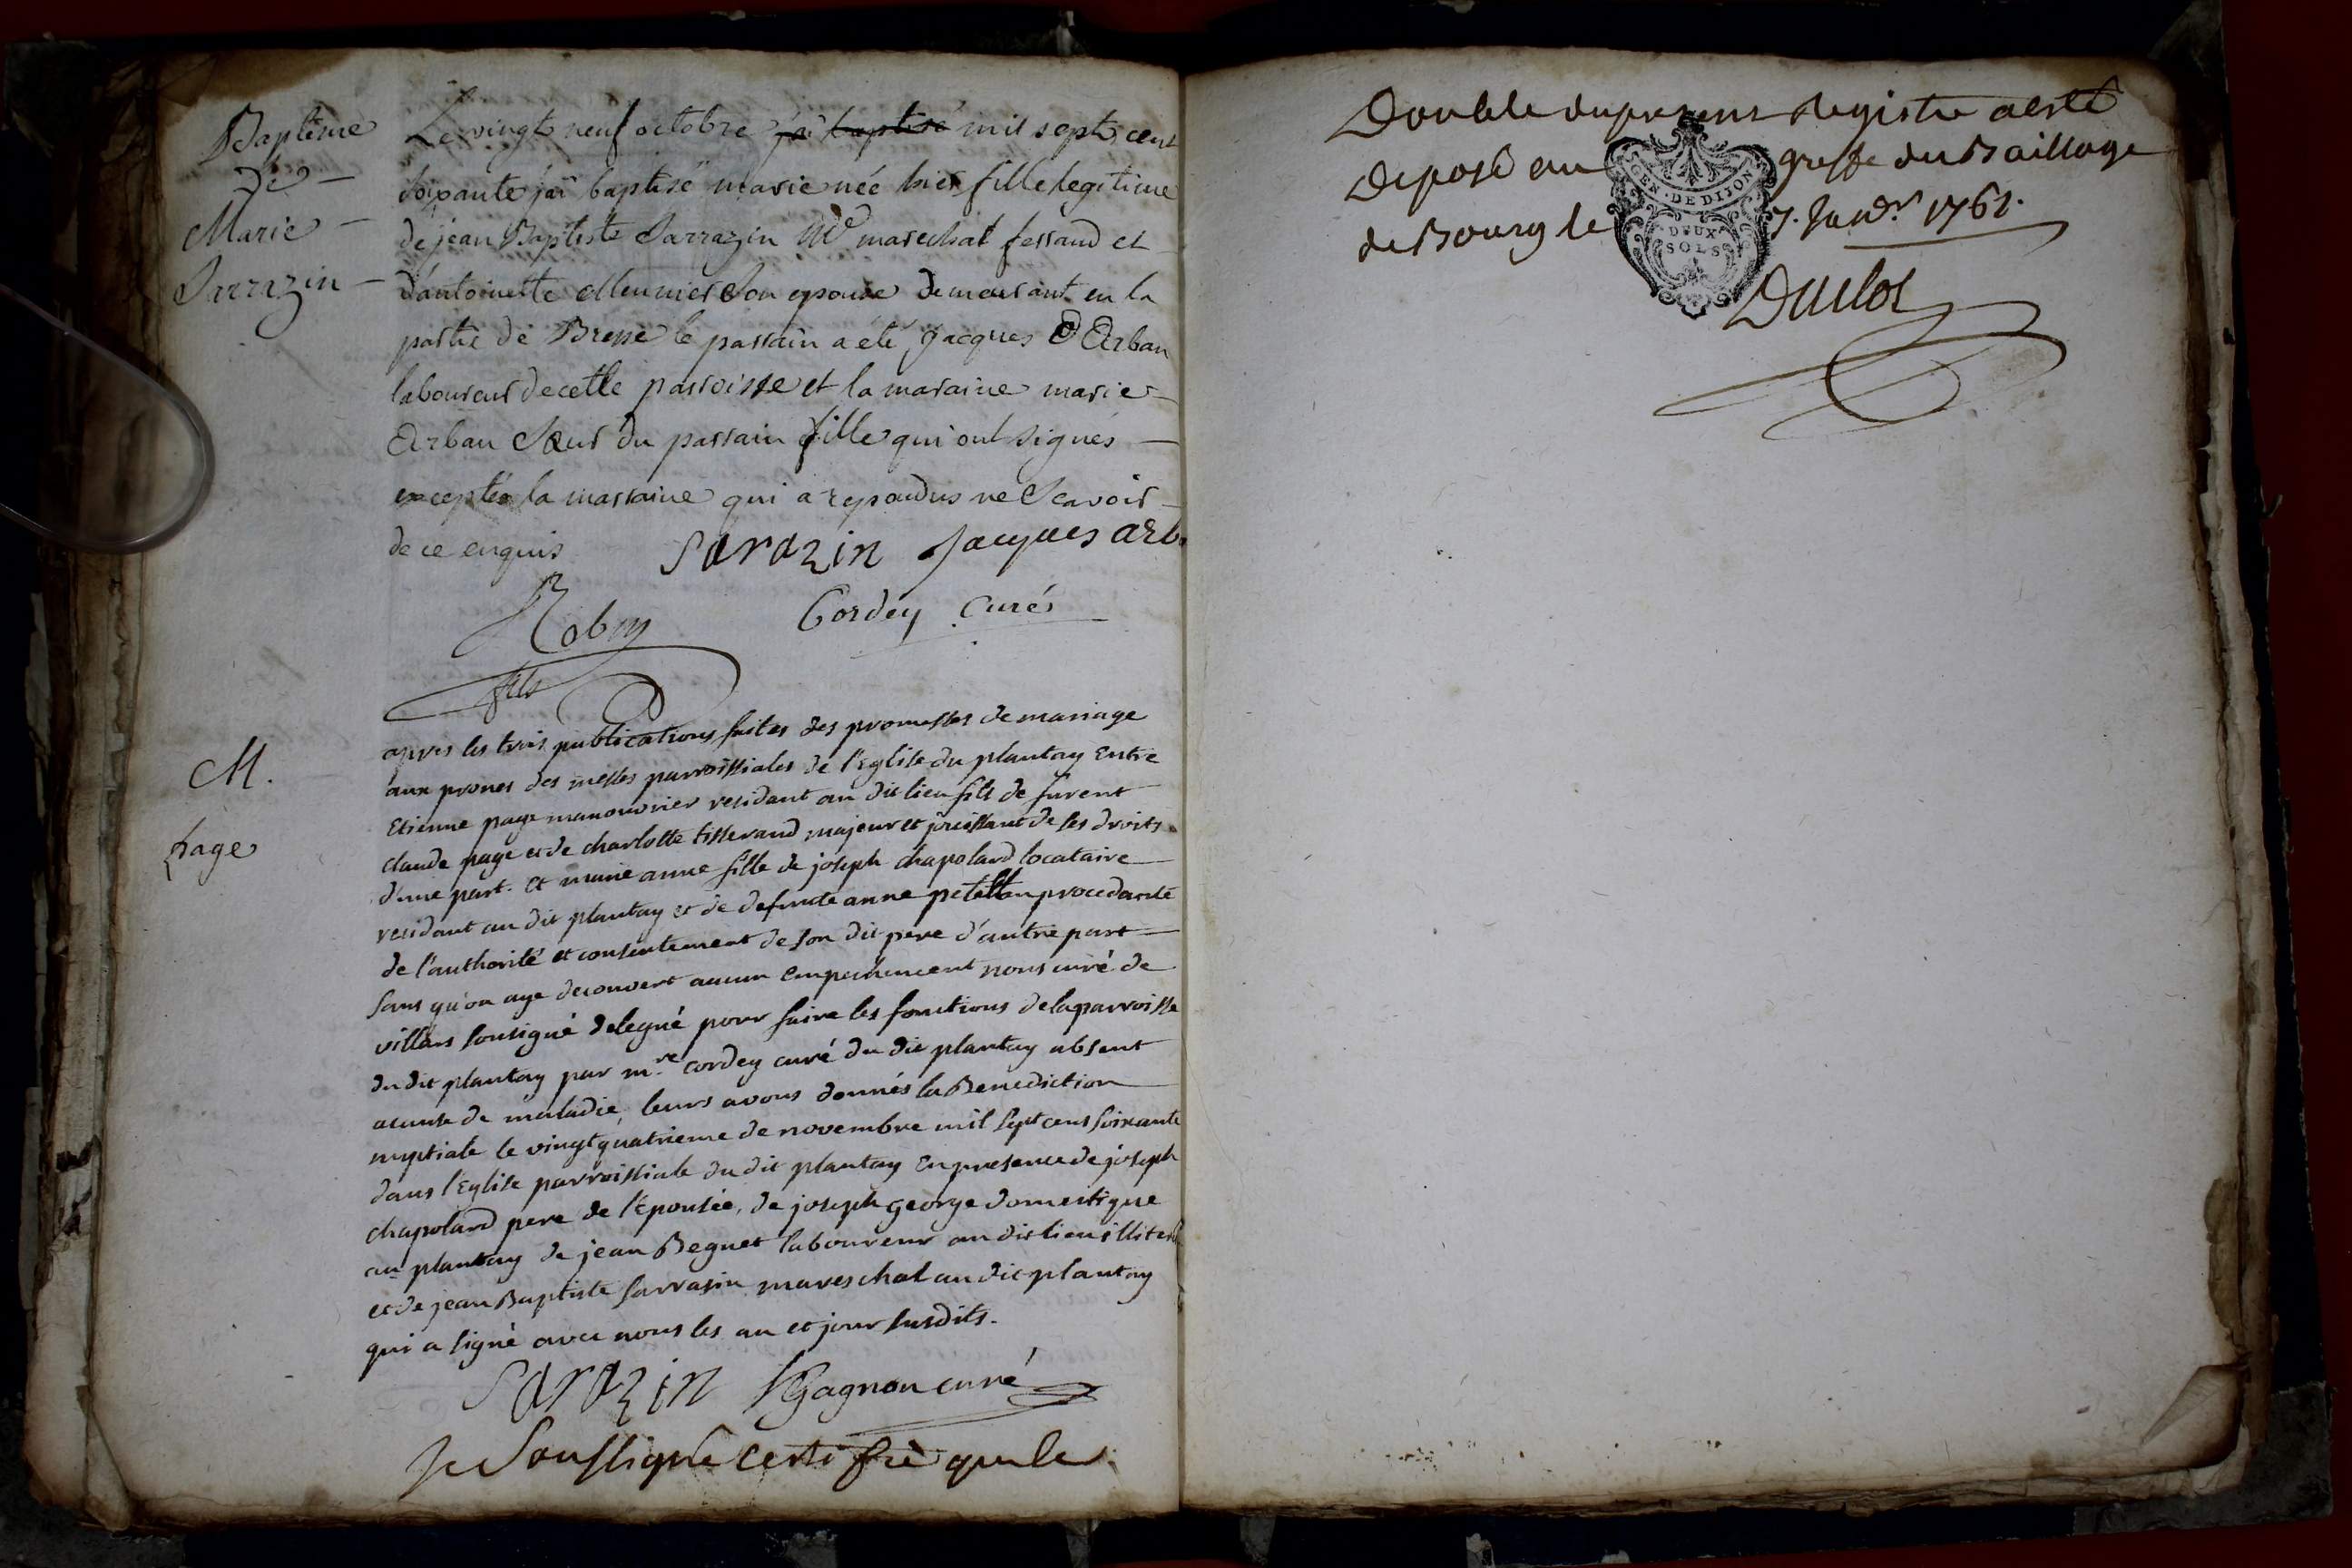 Baptême
de
Marie
Sarrazin
Le vingt neuf octobre j'ai baptisé mil sept cent
soixante j'ai baptisé marie née hier fille legitime
de jean Baptiste Sarrazin Md marechal ferrand et
d'antoinette Meunier son epouse demeurant en la
partie de Bresse le parrain a été jacques Arban
laboureur de cette parroisse et la maraine marie
Arban Sœur du parrain fille qui ont signés
exceptée la marraine qui a repondus ne Scavoir
de ce enquis
Sarazin Jacques arb
Robin Cordey Curés
fils
M.
page
apres les trois publications faites des promesses de mariage
aux prones des messes parroissiales de l'Eglise du plantay Entre
Etienne page manouvrier residant au dit lieu fils de furent
claude page et de charlotte tisserand majeur et joüissant de ses droits
d'une part. Et marie anne fille de joseph chapolard locataire
residant au dit plantay et de defunte anne procedante
de l'authorité et consentement de son dit pere d'autre part
sans qu'on aye decouvert aucun empechement nous curé de
villars sousigné delegué pour faire les fonctions de la parroisse
du dit plantay par m.re cordey curé du dit plantay absent
acause de maladie, leurs avons donnés la Benediction
nuptiale le vingt quatrieme de novembre mil sept cent soixante
dans l'Eglise parroissiale du dit plantay En presence de joseph
chapolard pere de l'Epousée, de joseph george domestique
au plantay de jean Beguet laboureur au dit lieu
et de jean Baptiste sarrasin mareschal au dit plantay
qui a signé avec nous les an et jour susdits.
Sarazin Gagnon curé
Je Soussigné certifie que le
Double du present Registre a esté
deposé au greffe du Baillage
de Bourg le 7. Janvr 1761.
GEN. DE DIJON
DEUX
SOLS
Duclos